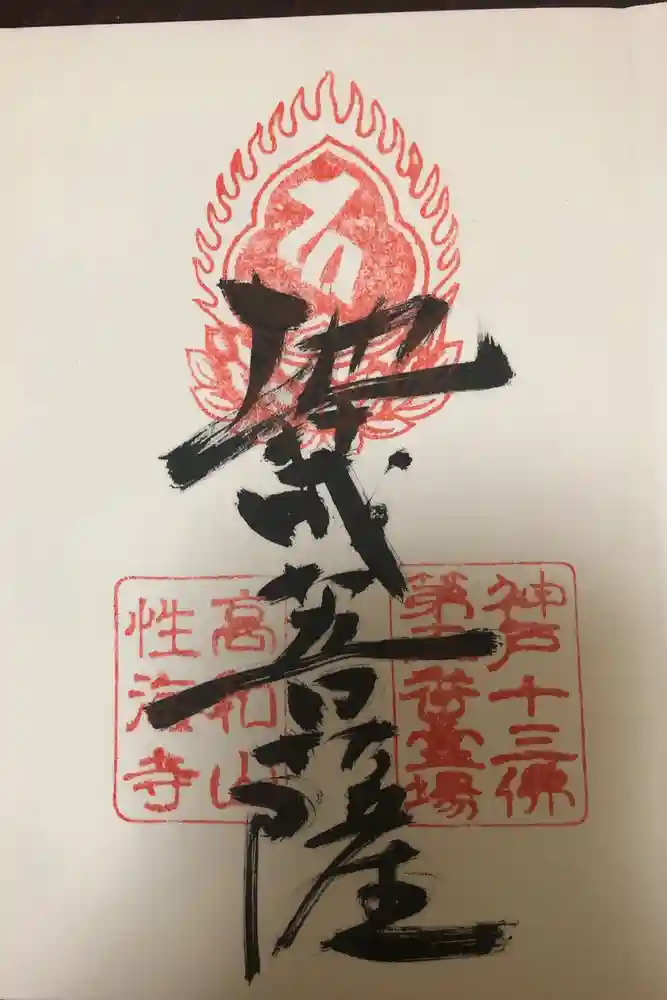 神戸十三佛
第五番霊場
地蔵菩薩
高和山
性海寺